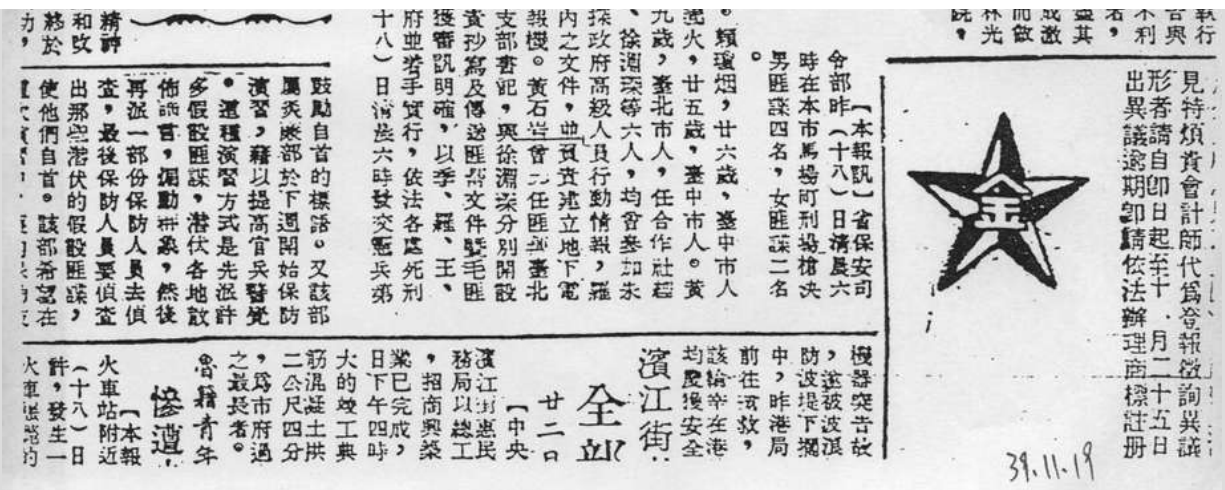 執行
告與
不利
名,
盡其
成激
而做
林光
院,
見特煩貴會計師代爲登報徵詢異議
形者請自卽日起至十一月二十五日
出異議逾期卽請依法辦理商標註册
金
39.11.19
【本報訊】省保安司
令部昨(十八)日淸晨六
時在本市馬場町刑場槍決
男匪諜四名,女匪諜二名
。
。賴瓊烟,廿六歲,臺中市人
火,廿五歲,臺中市人。黃
九歲,臺北市人,任合作社經
、徐淵琛等六人,均曾參加朱
探政府高級人員行動情報,羅
內之文件,並負責建立地下電
報機。黃石岩曾充任匪華臺北
支部書記,與徐淵琛分別開設
責抄寫及傳送匪幫文件曁毛匪
獲審訊明確,以季、羅、王、
府並着手實行,依法各處死刑
十八)日淸晨六時發交憲兵第
精神
和改
終於
鼓勵自首的標語。又該部
屬炎威部於下週開始保防
演習,藉以提高官兵警覺
。這種演習方式是先派許
多假設匪諜,潛伏各地散
佈謠言,煽動群衆,然後
再派一部份保防人員去偵
查,最後保防人員要偵查
出那些潛伏的假設匪諜,
使他們自首。該部希望在
機器突告故
,遂被波浪
防波堤下擱
中,昨港局
前往拯救,
該輪幸在港
均慶獲安全
濱江街
全部
廿二日
【中央
濱江街惠民
務局以總工
,招商興築
業已完成,
日下午四時
大的竣工典
筋混凝土拱
二公尺四分
,爲市府過
之最長者。
魯籍青年
慘遭
【本報
(十八)日
火車站附近
許,發生一
火車輾斃的